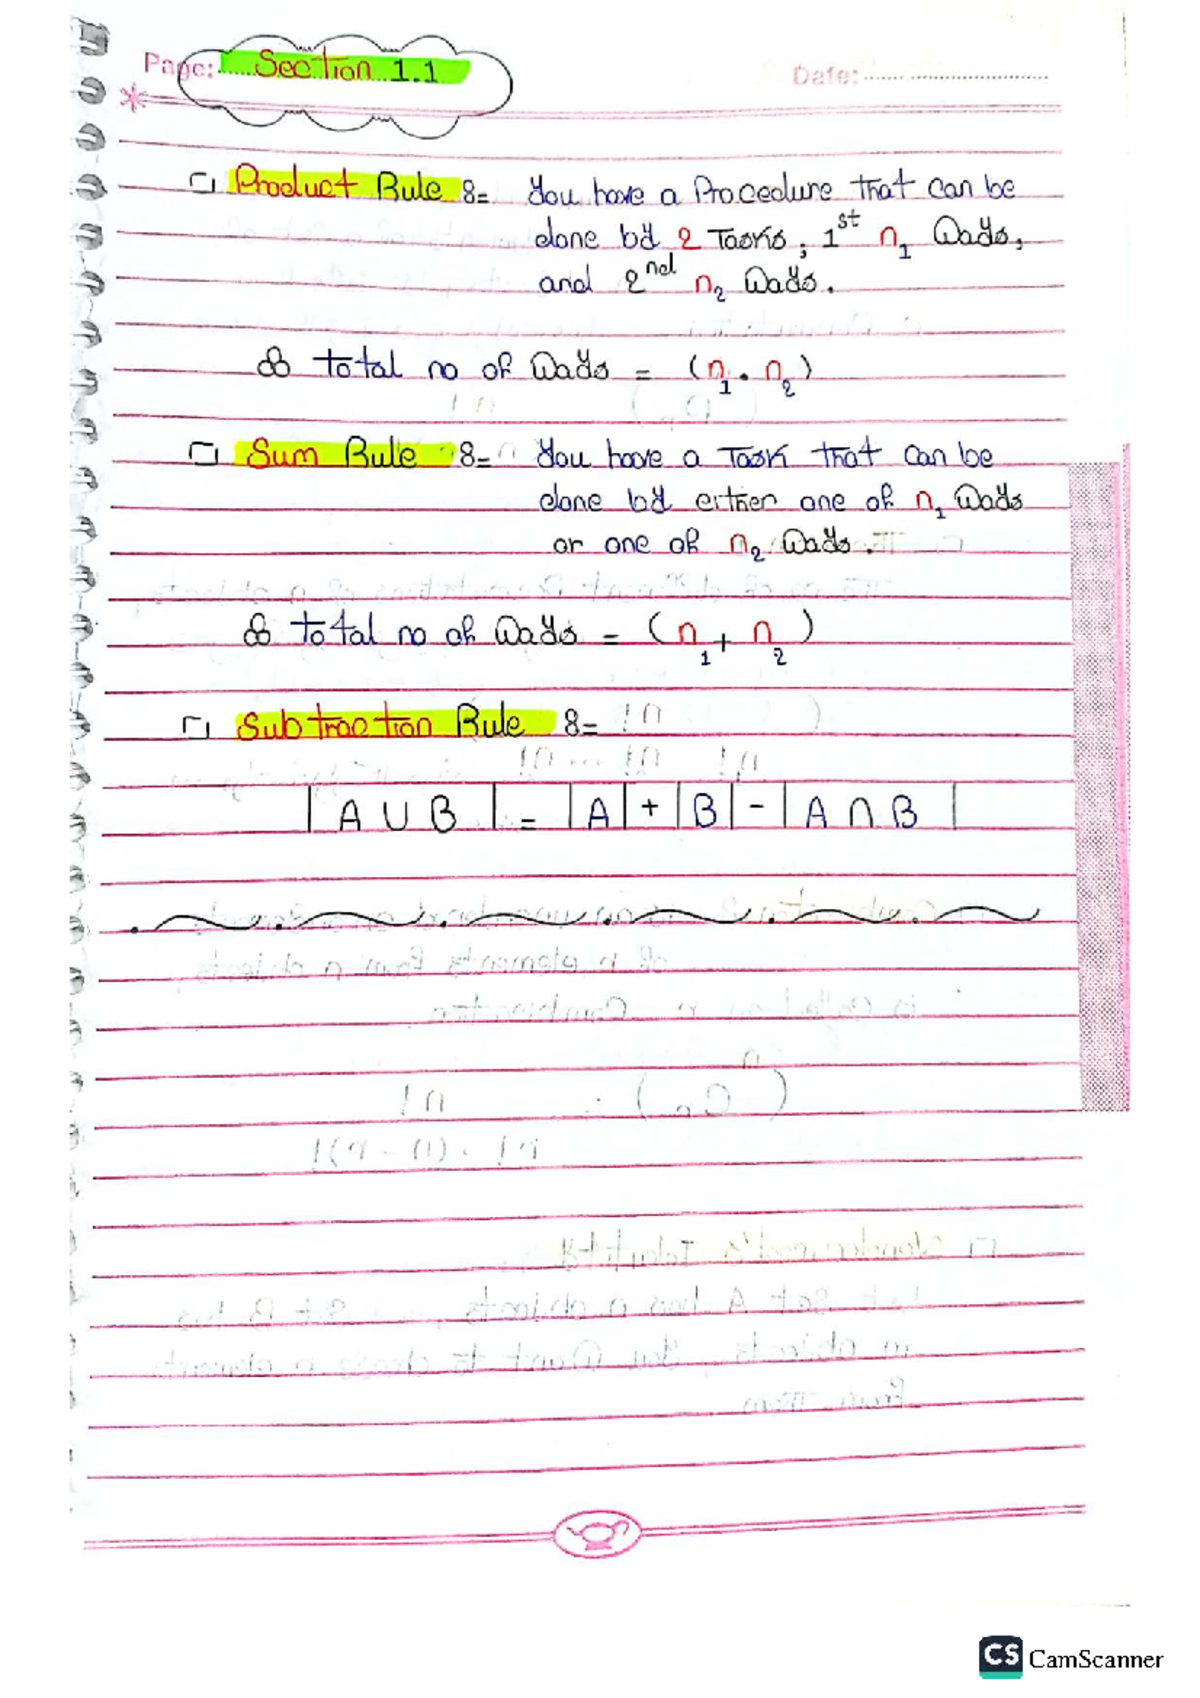 Page: Section 1.1 Date:
Product Rule :- You have a Procedure that can be
done by 2 Tasks, 1st n1 Ways,
and 2nd n2 Ways.
∴ total no of Ways = (n1 . n2)
Sum Rule :- You have a Task that can be
done by either one of n1 Ways
or one of n2 Ways.
∴ total no of Ways = (n1 + n2)
Subtraction Rule :-
|A ∪ B| = |A| + |B| - |A ∩ B|
CS CamScanner